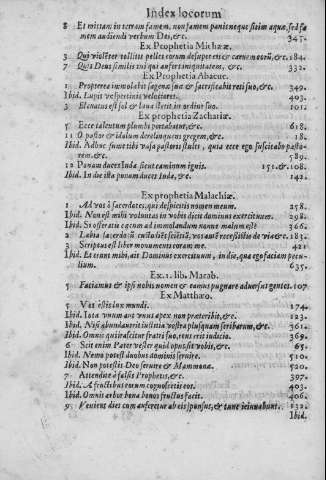 Index locorum
8 Et mittam in terram famem, non famem panis neque sitim aquæ, sed fa
mem audiendi verbum Dei, &c. 345.
Ex Prophetia Michææ.
3 Qui violẽter tollitis pelles eorum desuper eis & carnẽ eorũ, &c. 184.
7 Quis Deus similis tui qui aufers iniquitatem, &c. 332.
Ex Prophetia Abacuc.
1 Propterea immolabit sagenæ suæ & sacrificabit reti suo, &c. 349.
Ibid. Lupis vespertinis velociores. 403.
3 Eleuatus est sol & luna stetit in ordine suo. 101.
Ex prophetia Zachariæ.
5 Ecce talentum plumbi portabatur, &c. 618.
11 O pastor & idolum derelinquens gregem, &c. 18.
Ibid. Adhuc sume tibi vasa pastoris stulti, quia ecce ego suscitabo pasto-
rem, &c. 589.
12 Ponam duces Iuda sicut caminum ignis. 151. & 108.
Ibid. In die illa ponam duces Iuda, &c. 142.
Ex prophetia Malachiæ.
1 Ad vos ô sacerdotes, qui despicitis nomen meum. 258.
Ibid. Non est mihi voluntas in vobis dicit dominus exercituum. 298.
Ibid. Si offeratis cæcum ad immolandum nonne malum est? 366.
2 Labia sacerdotũ custodiẽt sciẽtiã, vos autẽ recessistis de via &c. 183.
3 Scriptus est liber monumenti coram me. 421
Ibid. Et erunt mihi, ait Dominus exercituum, in die, qua ego faciam pecu
lium. 635.
Ex. 1. lib. Macab.
5 Faciamus & ipsi nobis nomen & eamus pugnare aduersus gentes. 107.
Ex Matthæo.
5 Vos estis lux mundi. 174.
Ibid. Iota vnum aut vnus apex non præteribit, &c. 123.
Ibid. Nisi abundauerit iustitia vestra plusquam scribarum, &c. 361.
Ibid. Omnis qui irascitur fratri suo, reus erit iudicio. 369.
6 Scit enim Pater vester quid opus sit vobis, &c. 65.
Ibid. Nemo potest duobus dominis seruire. 510.
Ibid. Non potestis Deo seruire & Mammonæ. 520.
7 Attendite à falsis Prophetis, &c. 397.
Ibid. A fructibus eorum cognoscetis eos. 403.
Ibid. Omnis arbor bona bonos fructus facit. 406.
9 Venient dies cum auferetur ab eis sponsus, & tunc ieiunabunt. 132.
Ibid.